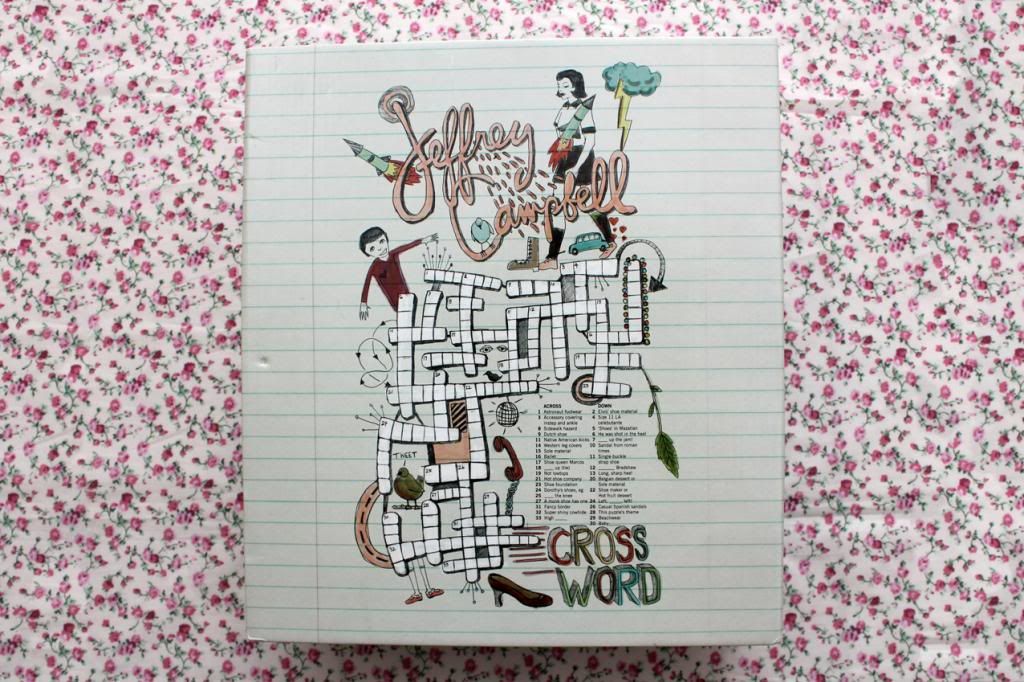 Jeffrey
Campbell
TWEET
ACROSS
1 Astronaut footwear
3 Accessory covering
instep and ankle
8 Sidewalk hazard
9 Dutch shoe
11 Native American kicks
14 Western leg covers
15 Sole material
16 Ballet
17 Shoe queen Marcos
18 ____ up (tie)
19 Not lowtops
21 Hot shoe company
23 Shoe foundation
24 Dorothy's shoes, eg
25 ____ the knee
27 A monk shoe has one
31 Fancy border
32 Super shiny cowhide
33 High ____
DOWN
2 Elvis' shoe material
4 Size 11 LA
celebutante
5 'Shoes' in Mazatlan
6 He was shot in the heel
7 ____ up the jam!
10 Sandal from roman
times
11 Single-buckle
strap shoe
12 ____ Bradshaw
13 Long, sharp heel
20 Belgian dessert or
Sole material
22 Shoe maker or
Hot fruit dessert
24 Left, ____
26 Casual Spanish sandals
28 This puzzle's theme
29 Beachwear
30 Baby
CROSS
WORD